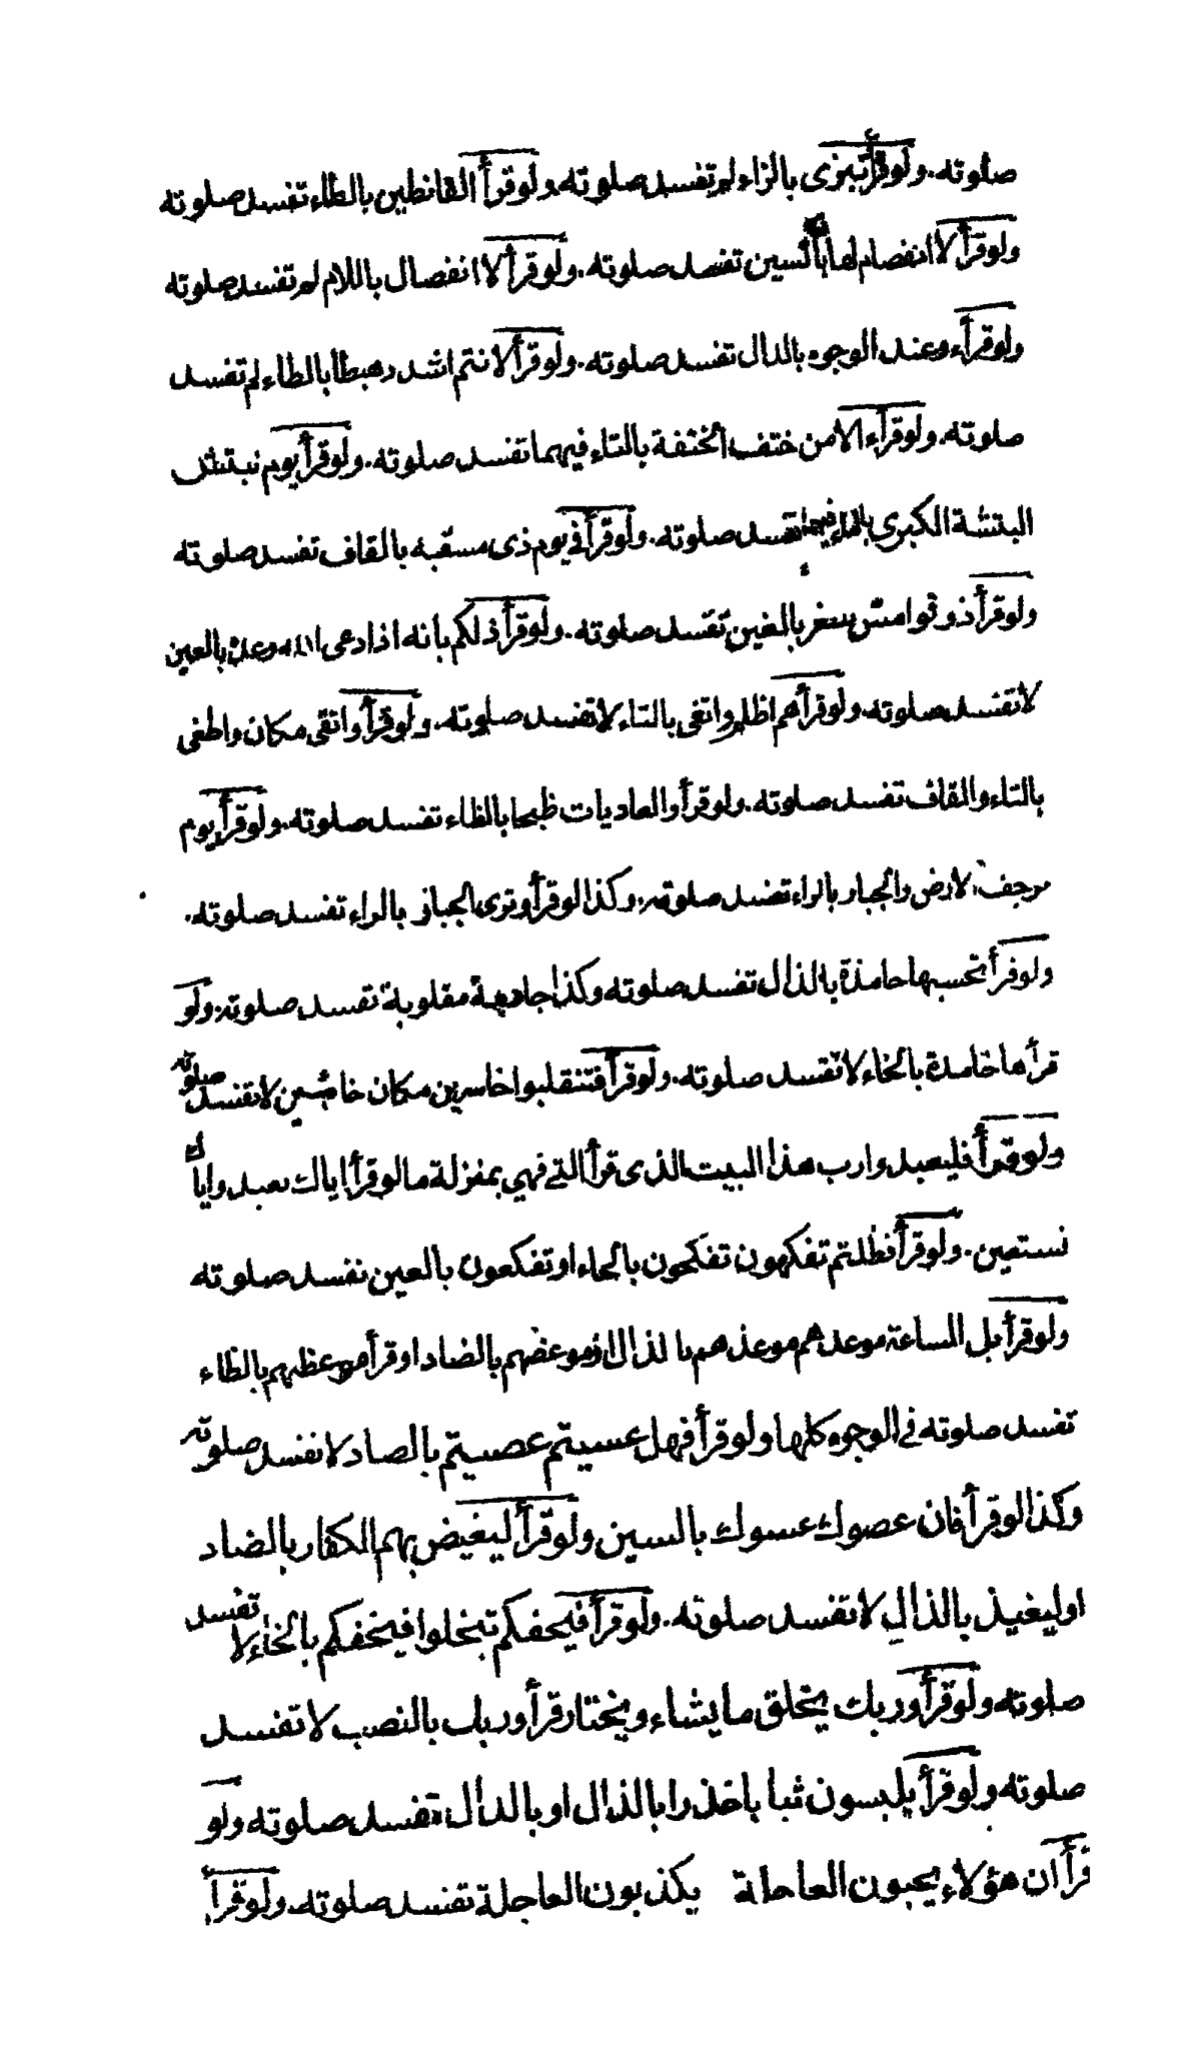 صلوته. ولو قرأ تبزى بالزاء لم تفسد صلوته ولو قرأ القانطين بالطاء تفسد صلوته
ولو قرأ لا انفصام لها بالسين تفسد صلوته. ولو قرأ لا انفصال باللام لم تفسد صلوته
ولو قرأ وعند الوجوه بالدال تفسد صلوته. ولو قرأ لانتم اشد رهبطا بالطاء لم تفسد
صلوته. ولو قرأ الا من ختف الختفة بالتاء فيهما تفسد صلوته. ولو قرأ يوم نبتش
البتشة الكبرى بالتاء فيهما تفسد صلوته. ولو قرأ في يوم ذى مسقبه بالقاف تفسد صلوته
ولو قرأ ذوقوا مس سغر بالغين تفسد صلوته. ولو قرأ ذلكم بأنه اذا دعى الله وعده بالعين
لا تفسد صلوته. ولو قرأ هم اظلم واتغى بالتاء لا تفسد صلوته. ولو قرأ واتقى مكان واطغى
بالتاء والقاف تفسد صلوته. ولو قرأ والعاديات ظبحا بالظاء تفسد صلوته. ولو قرأ يوم
مرجف الارض والجبار بالراء تفسد صلوته. وكذا لو قرأ وترى الجبار بالراء تفسد صلوته.
ولو قرأ تحسبها حامذة بالذال تفسد صلوته وكذا جادمة مقلوبة تفسد صلوته. ولو
قرأها خامدة بالخاء لا تفسد صلوته. ولو قرأ فتنقلبوا خاسرين مكان خائبين لا تفسد صلوته
ولو قرأ فليعبدوا رب هذا البيت الذى قرأ التي فهي بمنزلة ما لو قرأ اياك نعبد واياك
نستعين. ولو قرأ فظلتم تفكهون تفكحون بالحاء او تفكعون بالعين تفسد صلوته
ولو قرأ بل الساعة موعدهم موعذهم بالذال او موعضهم بالضاد او قرأ موعظهم بالظاء
تفسد صلوته في الوجوه كلها ولو قرأ فهل عسيتم عصيتم بالصاد لا تفسد صلوته
وكذا لو قرأ فان عصوك عسوك بالسين ولو قرأ ليغيض بهم الكفار بالضاد
او ليغيذ بالذال لا تفسد صلوته. ولو قرأ فيحفكم تبخلوا فيخفكم بالخاء لا تفسد
صلوته ولو قرأ وربك يخلق ما يشاء ويختار قرأ وربك بالنصب لا تفسد
صلوته ولو قرأ يلبسون ثيابا خذرا بالذال او بالدال تفسد صلوته ولو
قرأ ان هؤلاء يحبون العاجلة يكذبون العاجلة تفسد صلوته. ولو قرأ